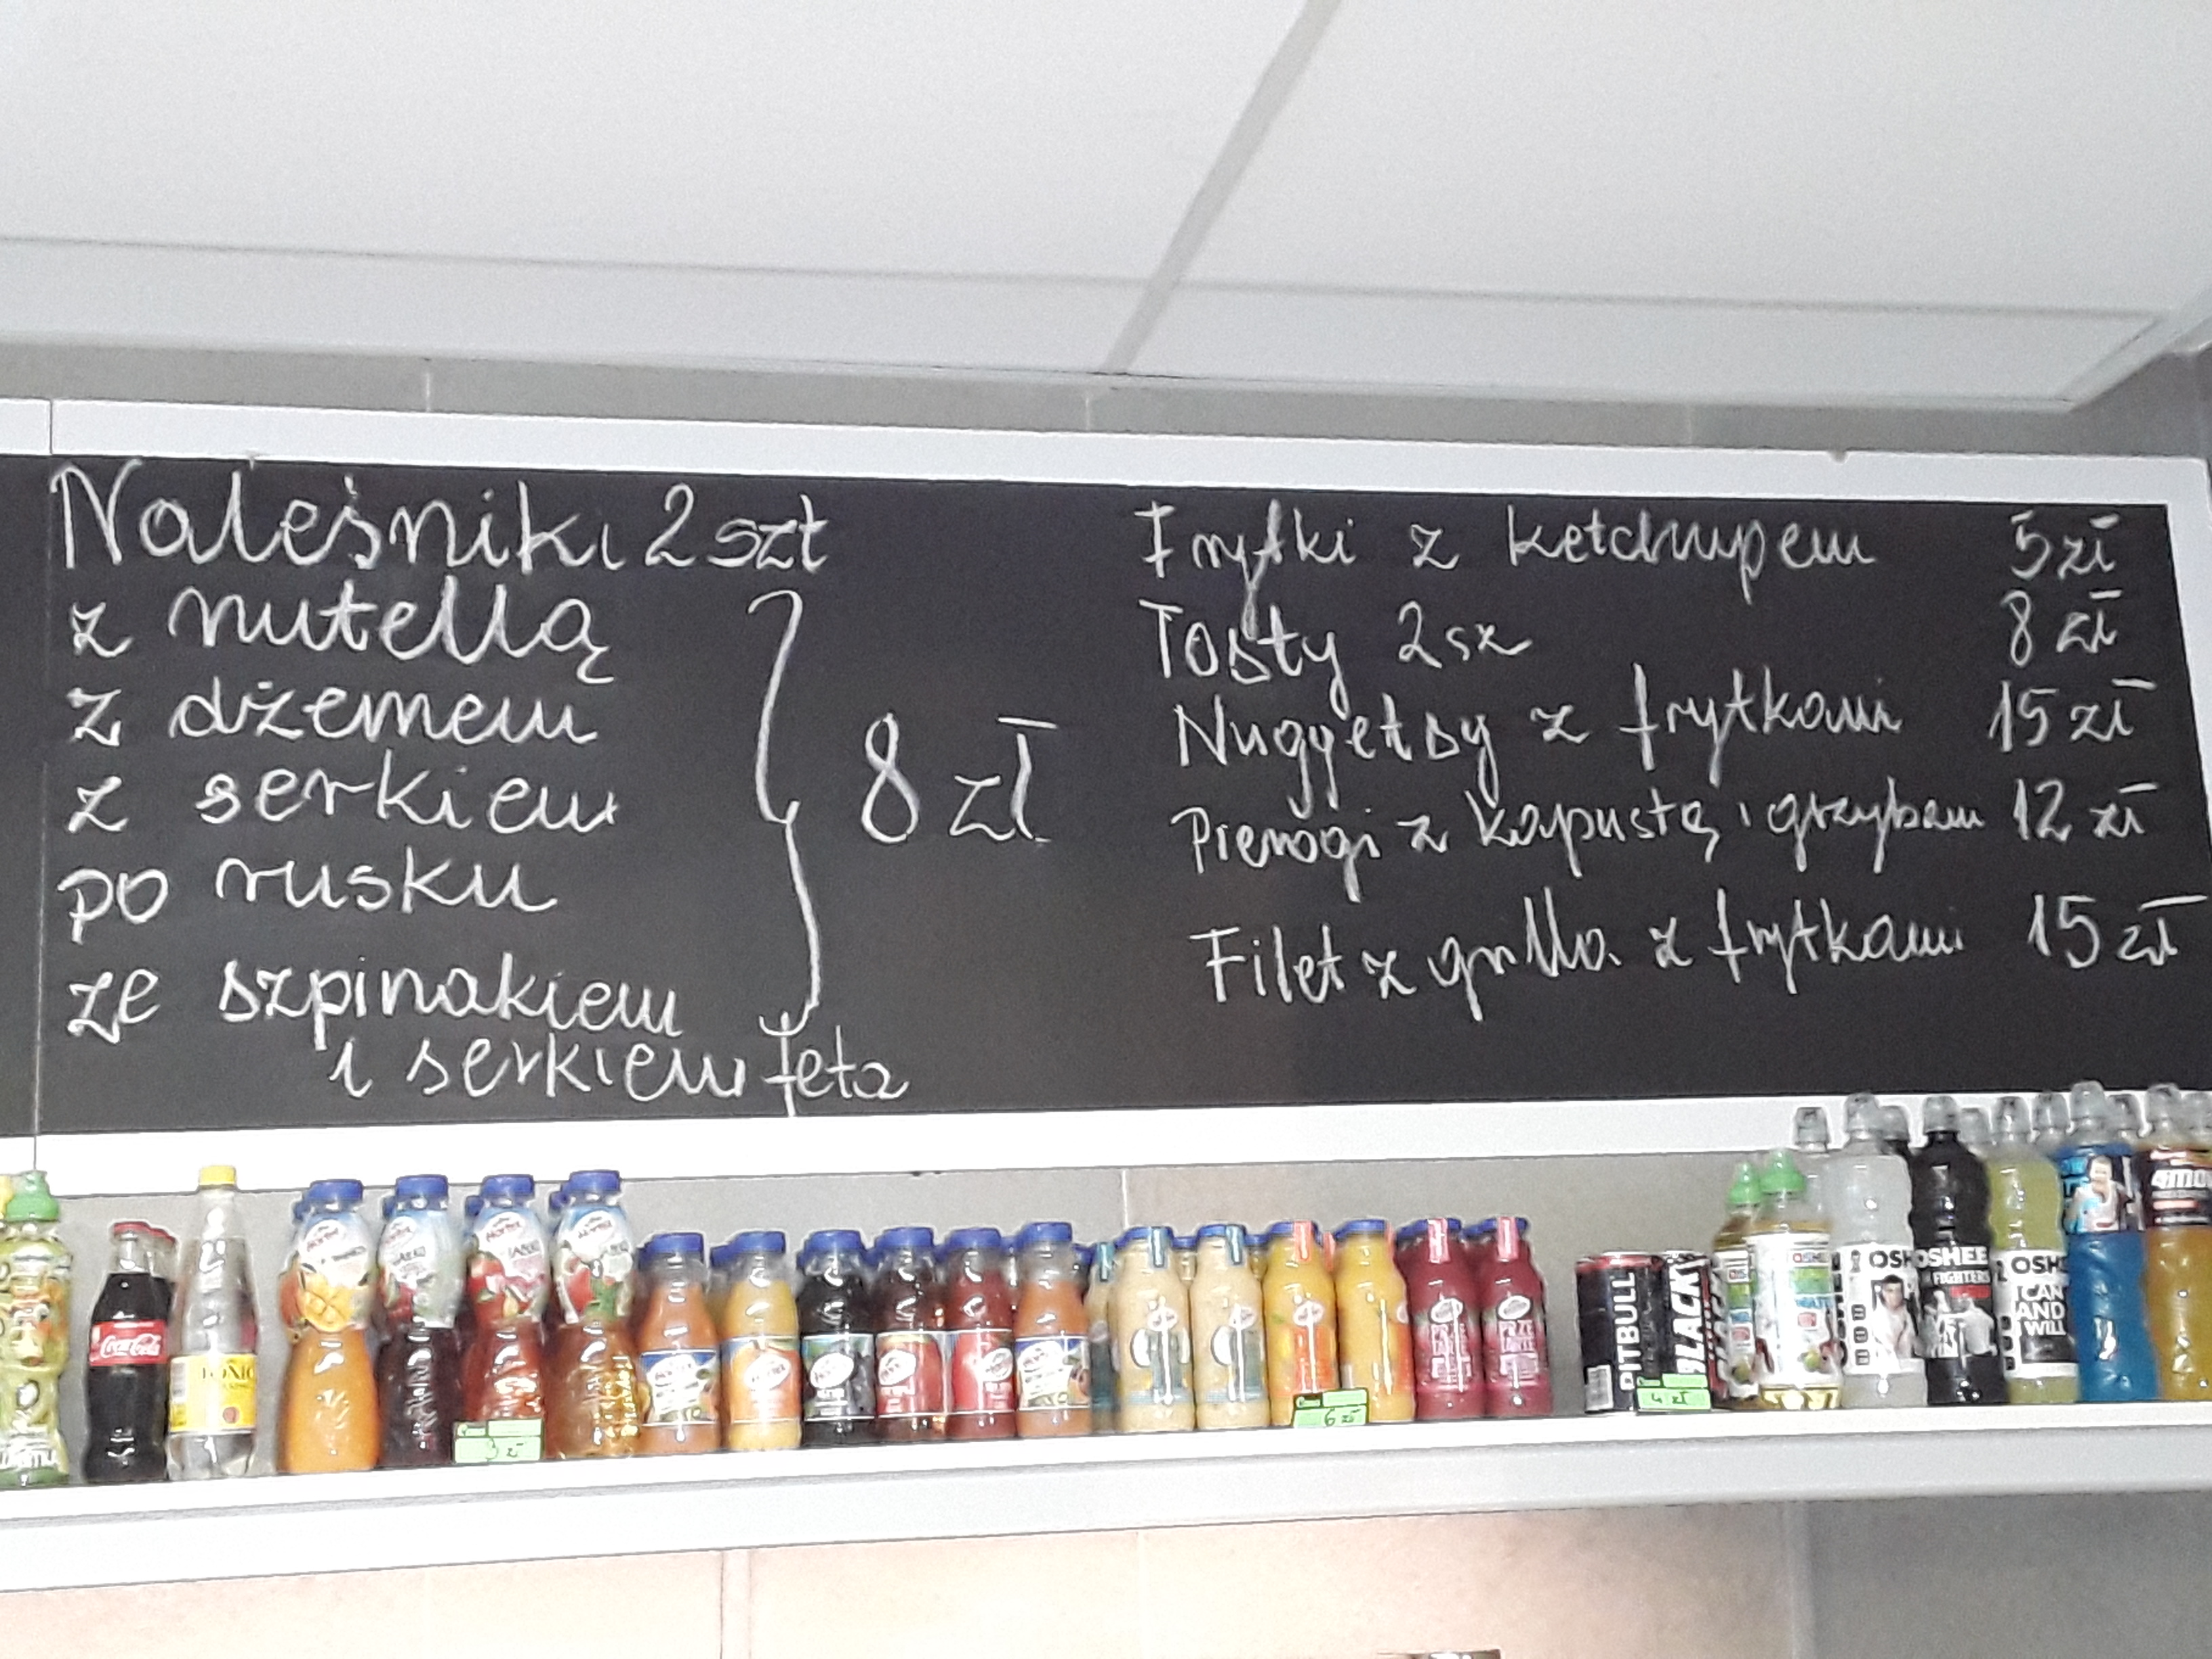 Naleśniki 2 szt
z nutellą
z dżemem
z serkiem
po rusku
ze szpinakiem
i serkiem feta
8 zł
Frytki z ketchupem 5 zł
Tosty 2 sz 8 zł
Nuggetsy z frytkami 15 zł
Pierogi z kapustą i grzybami 12 zł
Filet z grilla z frytkami 15 zł
Coca-Cola
TONIC
3 zł
6 zł
PITBULL
BLACK
4 zł
OSHEE
OSH
OSHEE
FIGHTERS
OSHE
I CAN
AND I
WILL
4MOVE